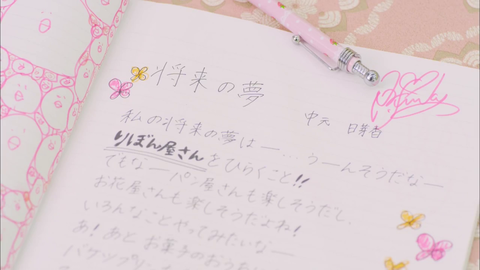 将来の夢
中元 日芽香
私の将来の夢は―…うーんそうだなー
りぼん屋さんをひらくこと!!
でもなーパン屋さんも楽しそうだし
お花屋さんも楽しそうだよね!
いろんなことやってみたいなー
あ!あとお菓子のおうち
バケツプリン